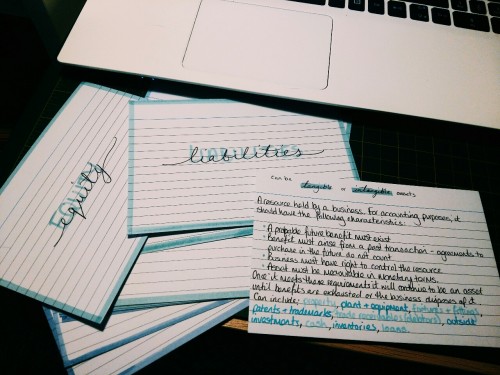 EQUITY
equity
LIABILITIES
liabilities
can be tangible or intangible assets
A resource held by a business. For accounting purposes, it
should have the following characteristics:
· A probable future benefit must exist
· Benefit must arise from a past transaction - agreements to
purchase in the future do not count
· Business must have right to control the resource
· Asset must be measurable in monetary terms.
Once it meets these requirements it will continue to be an asset
until benefits are exhausted or the business disposes of it.
Can include: property, plant + equipment, fixtures + fittings,
patents + trademarks, trade receivables (debtors), outside
investments, cash, inventories, loans.